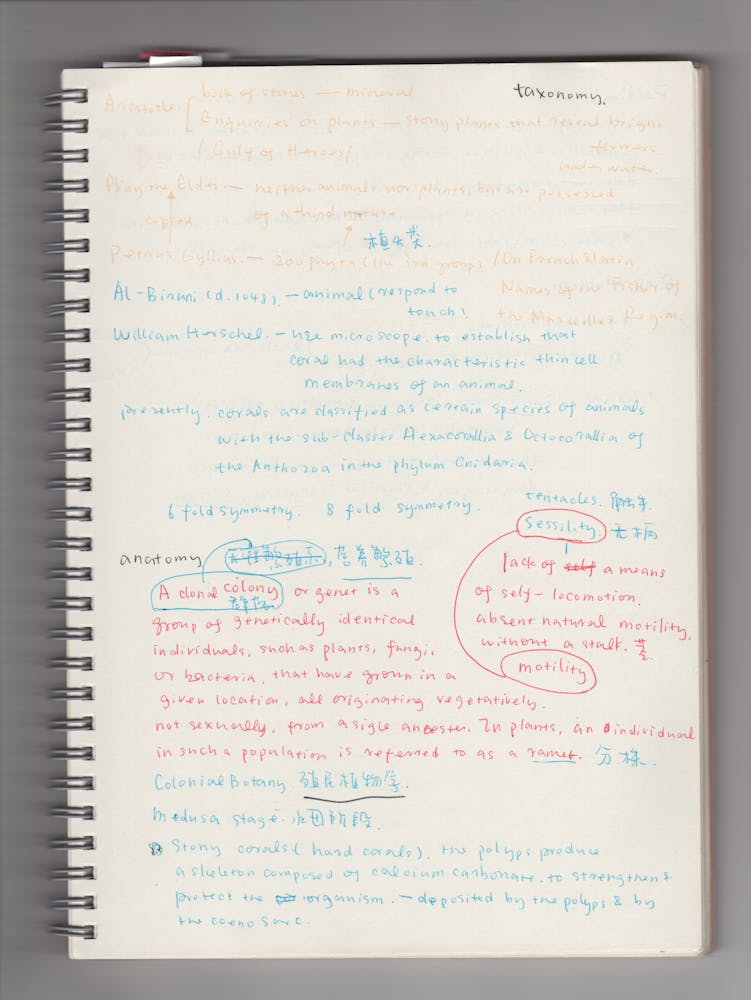 taxonomy.
Aristotle. book of stones — mineral
Enquiries on plants — stony plants that reveal bright
flowers
under water.
/ Gulf of Heroes/
Pliny the Elder — neither animals nor plants, but are possessed
copied of a third nature
植虫类.
Petrus Gyllius. — zoophyta (the 3rd group) / On French & Latin
Names of the Fishes of
the Marseilles Region.
Al-Biruni (d. 1048). — animal (respond to
touch)
William Herschel. — use microscope. to establish that
coral had the characteristic thin cell
membranes of an animal.
presently. corals are classified as certain species of animals
with the sub-classes Hexacorallia & Octocorallia of
the Anthozoa in the phylum Cnidaria.
6 fold symmetry. 8 fold symmetry.
tentacles. 触手
Sessility. 无柄
lack of a means
of self-locomotion.
absent natural motility,
without a stalk. 茎
motility
anatomy 无性繁殖系, 营养繁殖.
A clonal colony or genet is a
群体
group of genetically identical
individuals, such as plants, fungi,
or bacteria, that have grown in a
given location, all originating vegetatively.
not sexually, from a sigle ancester. In plants, an individual
in such a population is referred to as a ramet. 分株.
Colonial Botany 殖民植物学.
Medusa stage. 水母阶段.
Stony corals (hard corals), the polyps produce
a skeleton composed of calcium carbonate. to strengthen &
protect the organism. — deposited by the polyps & by
the coenosarc.